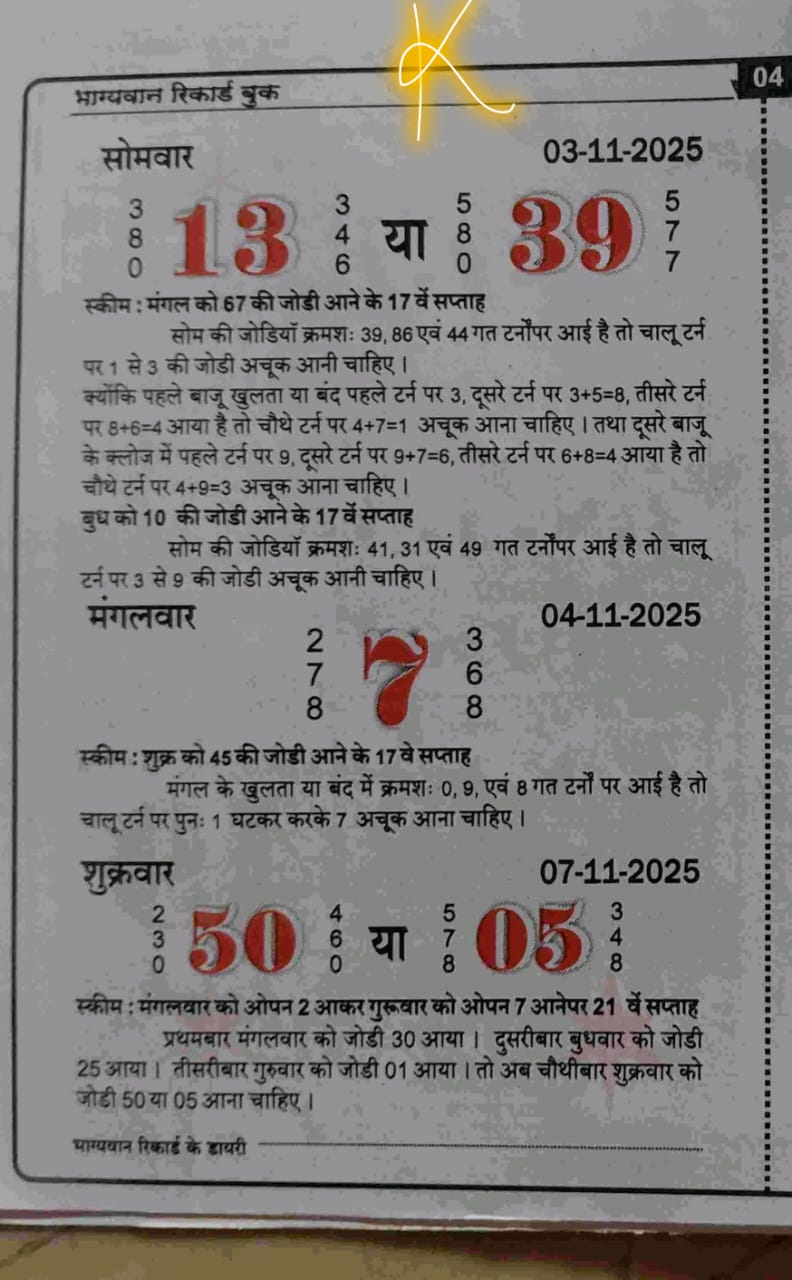 K
भाग्यवान रिकार्ड बुक 04
सोमवार 03-11-2025
3 3 5 5
8 13 4 या 8 39 7
0 6 0 7
स्कीम : मंगल को 67 की जोडी आने के 17 वें सप्ताह
सोम की जोडियॉ क्रमशः 39, 86 एवं 44 गत टर्नोंपर आई है तो चालू टर्न
पर 1 से 3 की जोडी अचूक आनी चाहिए ।
क्योंकि पहले बाजू खुलता या बंद पहले टर्न पर 3, दूसरे टर्न पर 3+5=8, तीसरे टर्न
पर 8+6=4 आया है तो चौथे टर्न पर 4+7=1 अचूक आना चाहिए । तथा दूसरे बाजू
के क्लोज में पहले टर्न पर 9, दूसरे टर्न पर 9+7=6, तीसरे टर्न पर 6+8=4 आया है तो
चौथे टर्न पर 4+9=3 अचूक आना चाहिए ।
बुध को 10 की जोडी आने के 17 वें सप्ताह
सोम की जोडियॉ क्रमशः 41, 31 एवं 49 गत टर्नोंपर आई है तो चालू
टर्न पर 3 से 9 की जोडी अचूक आनी चाहिए ।
मंगलवार 04-11-2025
2 3
7 7 6
8 8
स्कीम : शुक्र को 45 की जोडी आने के 17 वे सप्ताह
मंगल के खुलता या बंद में क्रमशः 0, 9, एवं 8 गत टर्नों पर आई है तो
चालू टर्न पर पुनः 1 घटकर करके 7 अचूक आना चाहिए ।
शुक्रवार 07-11-2025
2 4 5 3
3 50 6 या 7 05 4
0 0 8 8
स्कीम : मंगलवार को ओपन 2 आकर गुरूवार को ओपन 7 आनेपर 21 वें सप्ताह
प्रथमबार मंगलवार को जोडी 30 आया । दुसरीबार बुधवार को जोडी
25 आया । तीसरीबार गुरुवार को जोडी 01 आया । तो अब चौथीबार शुक्रवार को
जोडी 50 या 05 आना चाहिए ।
भाग्यवान रिकार्ड के डायरी